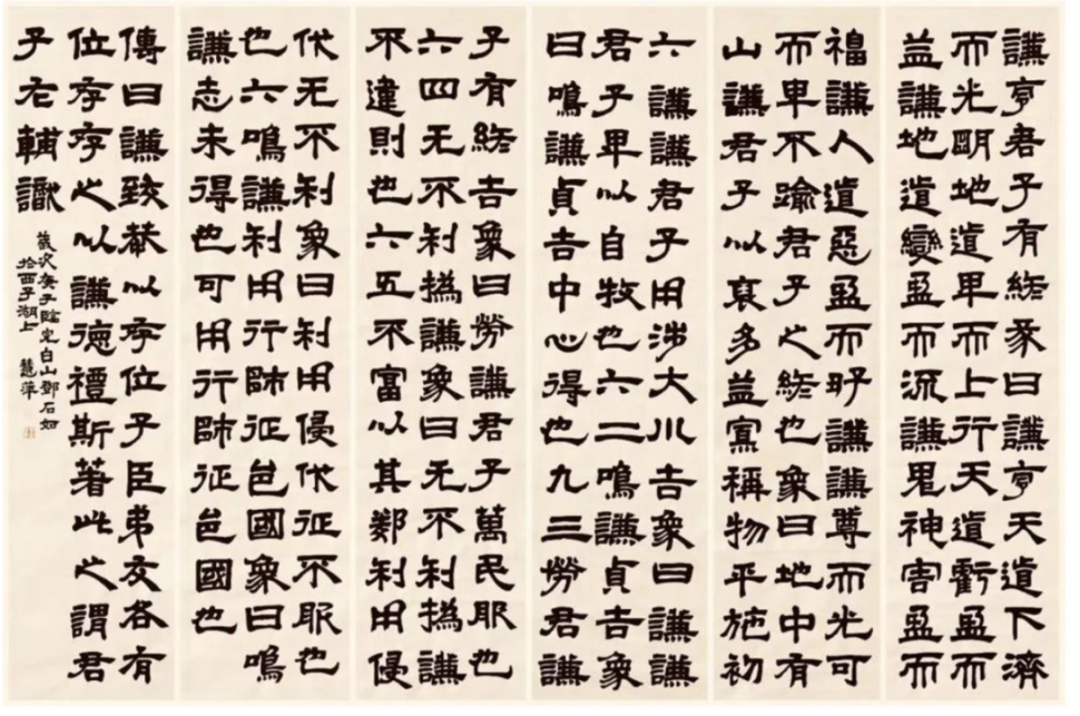 謙亨君子有終彖曰謙亨天道下濟
而光明地道卑而上行天道虧盈而
益謙地道變盈而流謙鬼神害盈而
福謙人道惡盈而好謙謙尊而光可
而卑不踰君子之終也象曰地中有
山謙君子以裒多益寡稱物平施初
六謙謙君子用涉大川吉象曰謙謙
君子卑以自牧也六二鳴謙貞吉象
曰鳴謙貞吉中心得也九三勞君謙
子有終吉象曰勞謙君子萬民服也
六四无不利撝謙象曰无不利撝謙
不違則也六五不富以其鄰利用侵
伐无不利象曰利用侵伐征不服也
也六鳴謙利用行師征邑國象曰鳴
謙志未得也可用行師征邑國也
傳曰謙致恭以存位子臣弟友各有
位存存之以謙德禮斯著此之謂君
子右輔識
歲次庚子臨完白山鄧石如
於西子湖上 慧萍